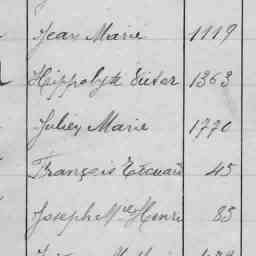 Jean Marie 1119
Hippolyte Victor 1363
Julien Marie 1770
François Edouard 45
Joseph Mie Henri 83